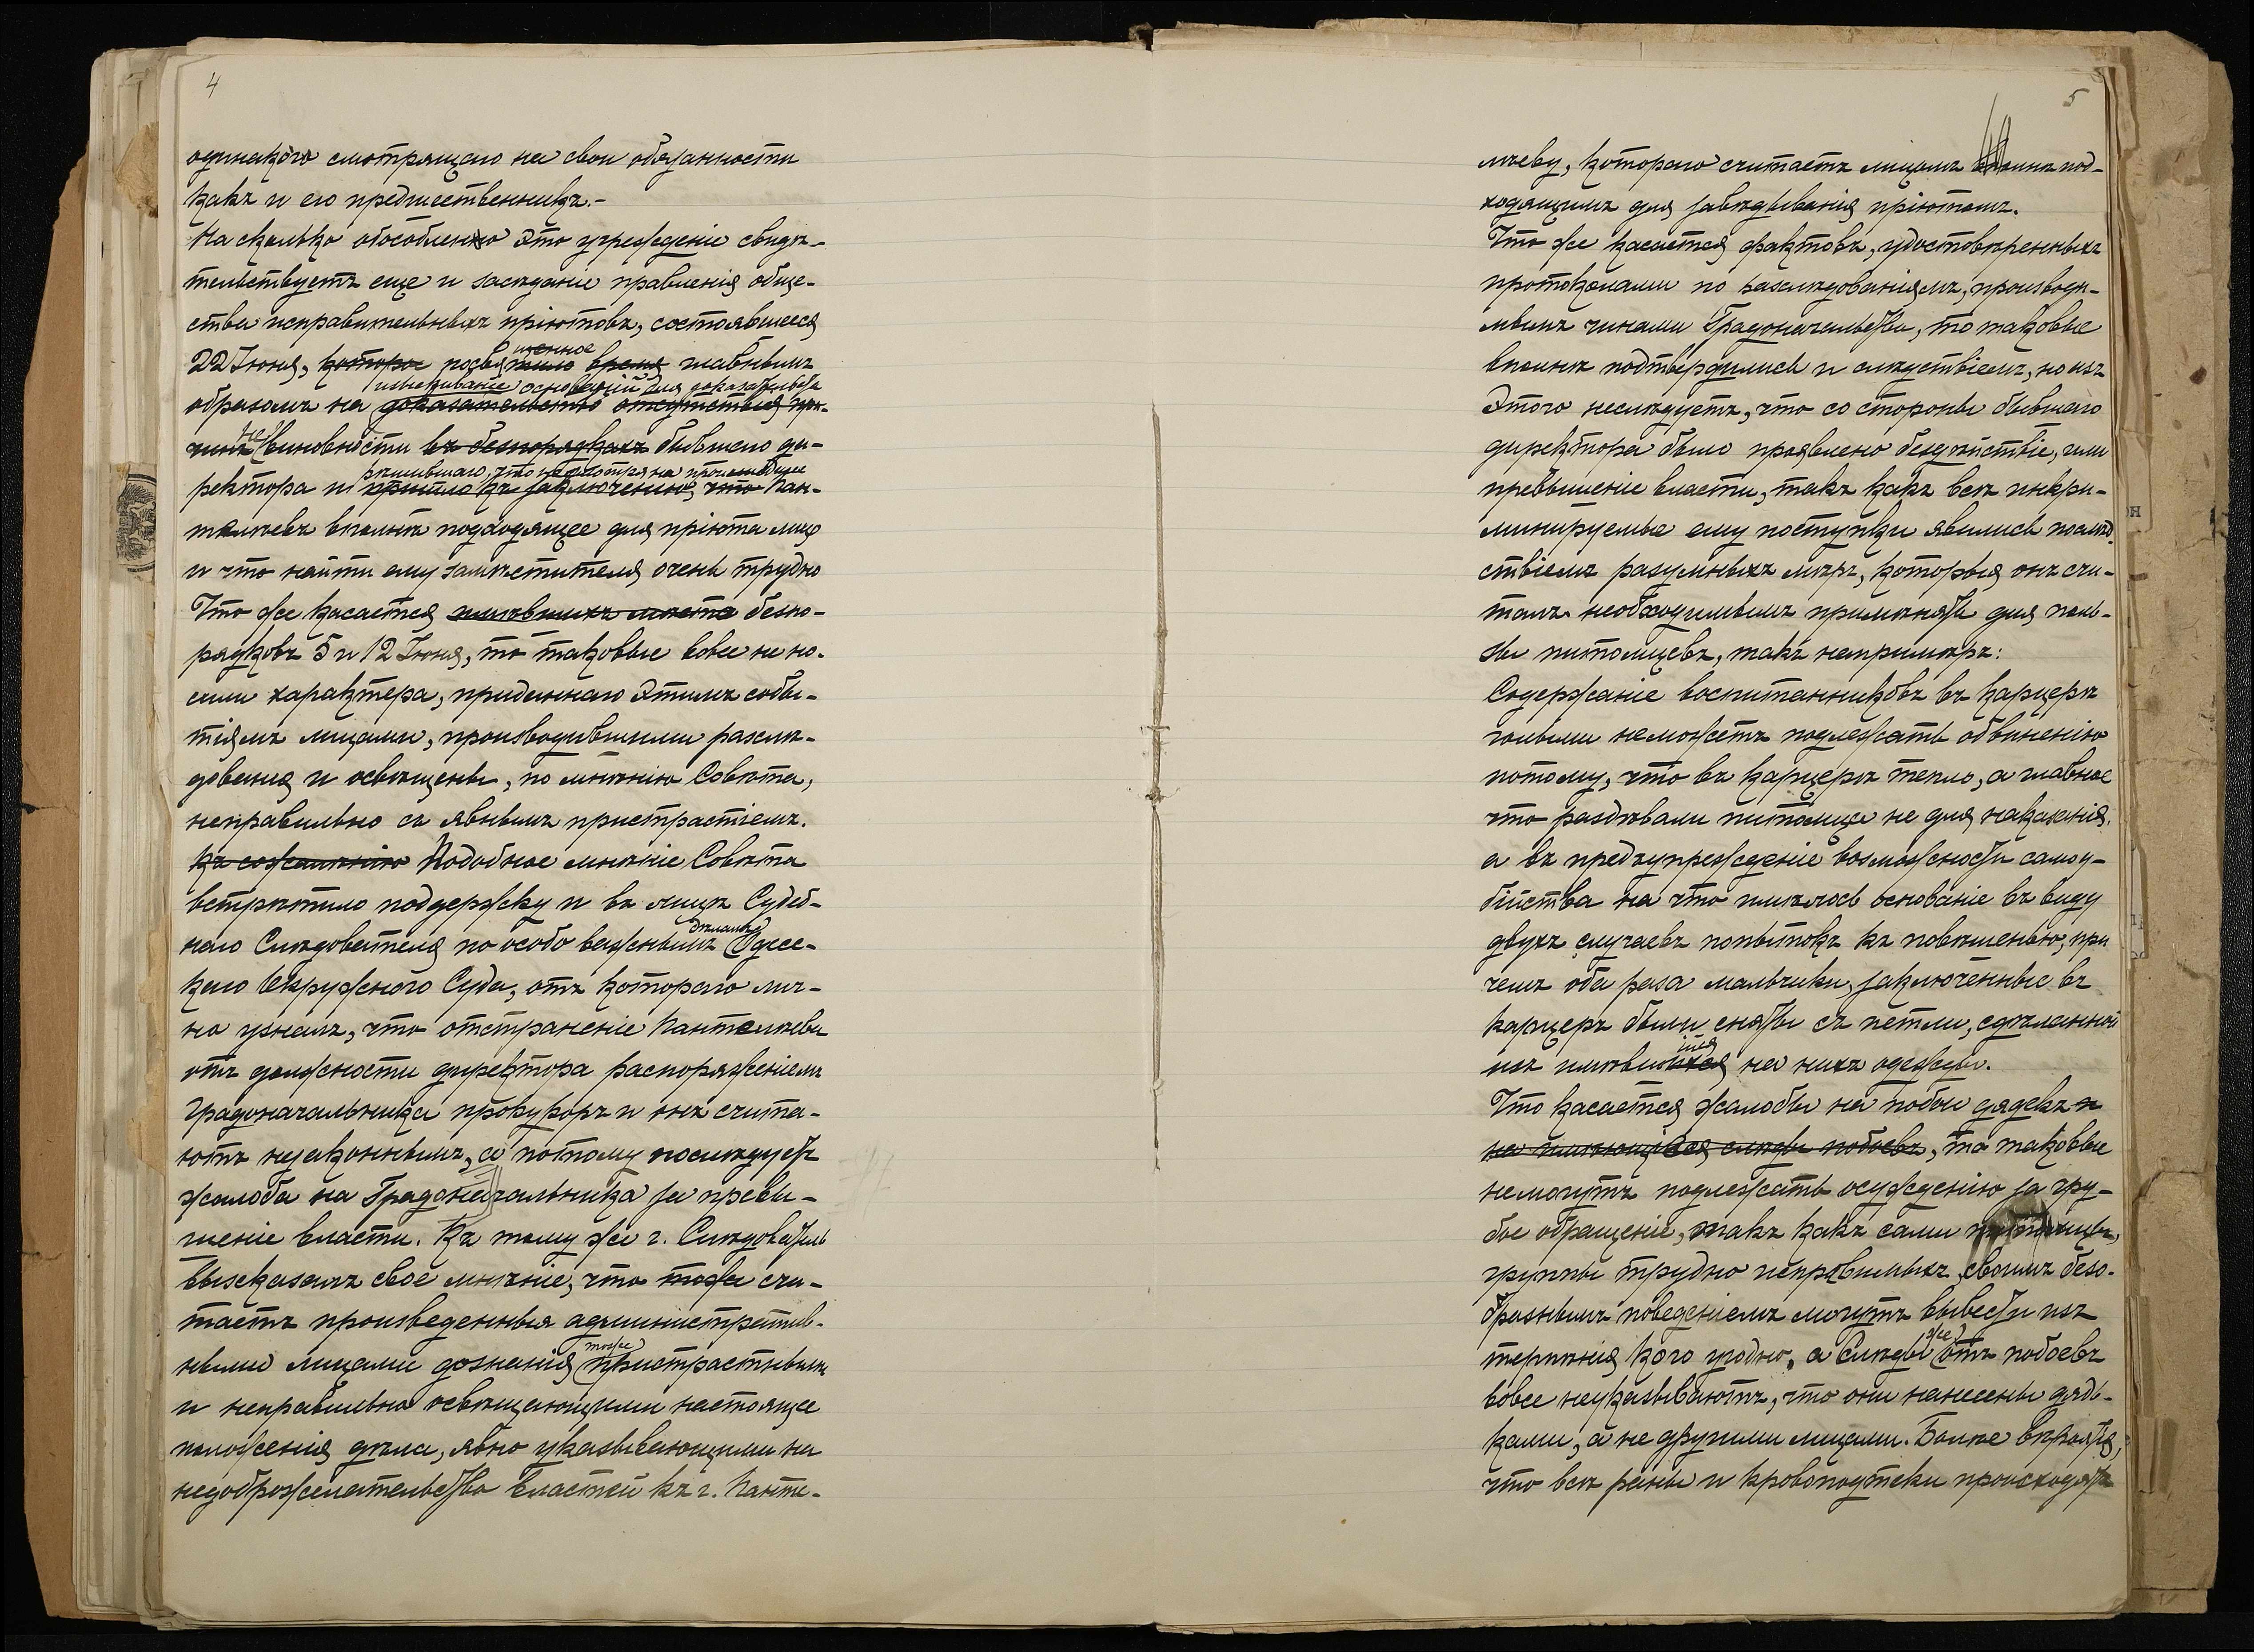 4
одинаково смотрящаго на свои обязанности
какъ и его предшественникъ.-
На сколько обособленно это учрежденіе свидѣ-
тельствуетъ еще и засѣданіе правленія обще-
ства исправительныхъ пріютовъ, состоявшееся
щенное
22 Іюня, которое посвятило время главнымъ
изыскиваніе основаній для доказательства
образомъ на доказательство отсутствія при-
не
чинъ виновности въ безпорядкахъ бывшаго ди-
рѣшившаго, что несмотря на происшедшее
ректора и пришло къ заключенію, что Пан-
телѣевъ вполнѣ подходящее для пріюта лицо
и что найти ему замѣстителя очень трудно
Что же касается имѣвшихъ мѣсто безпо-
рядковъ 5 и 12 Іюня, то таковые вовсе не но-
сили характера, приданнаго этимъ собы-
тіямъ лицами, производившими разслѣ-
дованія и освѣщены, по мнѣнію Совѣта,
неправильно съ явнымъ пристрастіемъ.
къ сожалѣнію Подобное мнѣніе Совѣта
встрѣтило поддержку и въ лицѣ Судеб-
дѣламъ
наго Слѣдователя по особо важнымъ Одес-
каго Окружного Суда, отъ котораго лич-
но узналъ, что отстраненіе Пантелѣева
отъ должности директора распоряженіемъ
Градоначальника прокуроръ и онъ счита-
ютъ незаконнымъ, а потому послѣдуетъ
жалоба на Градоначальника за превы-
шеніе власти. Къ тому же г. Слѣдователь
высказалъ свое мнѣніе, что тоже счи-
таетъ произведенныя административ-
тоже
ными лицами дознанія пристрастными
и неправильно освѣщающими настоящее
положенія дѣла, явно указывающими на
недоброжелательство властей къ г. Панте-
5
лѣеву, котораго считаетъ лицомъ вполнѣ под-
ходящимъ для завѣдыванія пріютомъ.
Что же касается фактовъ, удостовѣренныхъ
протоколами по разслѣдованіямъ, производи-
мымъ чинами Градоначальства, то таковые
вполнѣ подтвердились и слѣдствіемъ, но изъ
этого неслѣдуетъ, что со стороны бывшаго
директора было проявлено бездѣйствіе, или
превышеніе власти, такъ какъ всѣ инкри-
минируемые ему поступки явились послѣд-
ствіемъ разумныхъ мѣръ, которыя онъ счи-
талъ необходимымъ примѣнять для поль-
зы питомцевъ, такъ напримѣръ:
Содержаніе воспитанниковъ въ карцерѣ
голыми неможетъ подлежать обвиненію
потому, что въ карцерѣ тепло, а главное
что раздѣвали питомца не для наказанія,
а въ предупрежденіе возможности самоу-
бійства на что имѣлось основаніе въ виду
двухъ случаевъ попытокъ къ повѣшенью, при
чемъ оба раза мальчики, заключенные въ
карцеръ были сняты съ петли, сдѣланной
ейся
изъ имѣвшихся на нихъ одежды.
Что касается жалобы на побои дядекъ и
на имѣющіеся слѣды побоевъ, то таковые
немогутъ подлежать осужденію за гру-
бое обращеніе, такъ какъ сами питомцы,
группы трудно исправимыхъ, своимъ безо-
бразнымъ поведеніемъ могутъ вывести изъ
же
терпѣнія кого угодно, а Слѣды отъ побоевъ
вовсе неуказываютъ, что они нанесены дядь-
ками, а не другими лицами. Болѣе вѣроятно,
что всѣ раны и кровоподтеки происходятъ